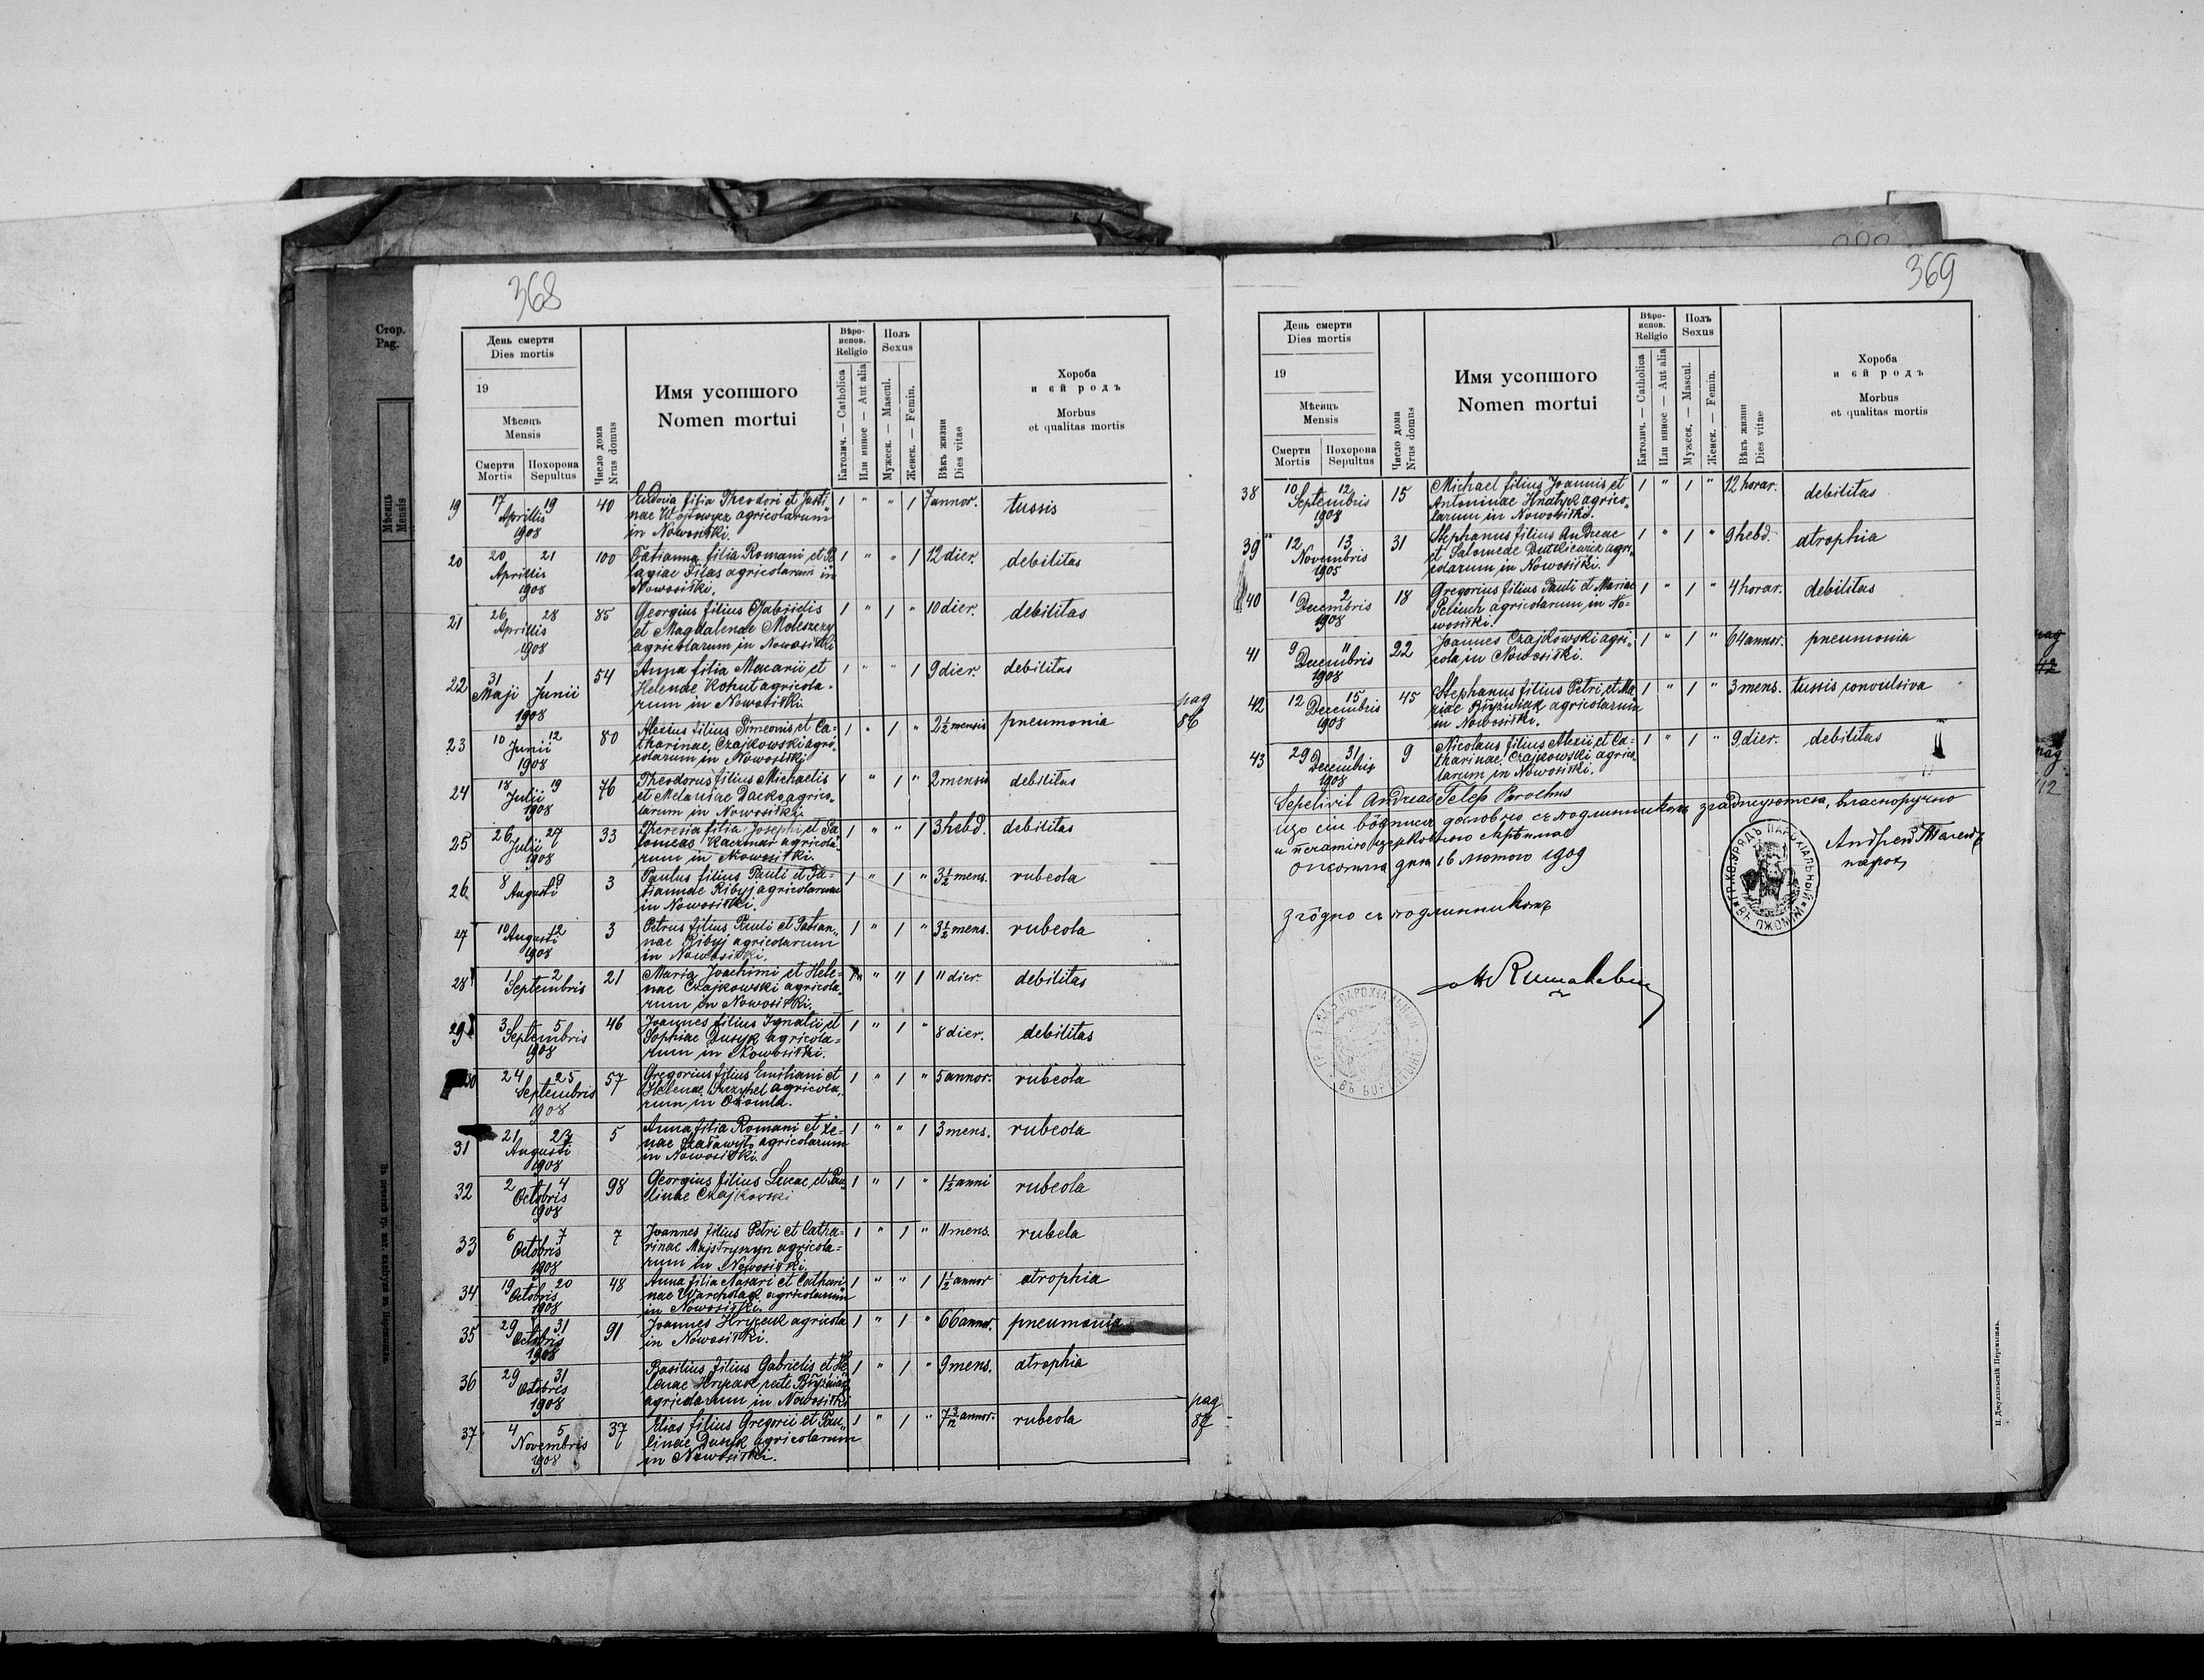 368
Стор.
Pag.
Мѣсяць
Mensis
День смерти
Dies mortis
19
Мѣсяць
Mensis
Смерти
Mortis
Похорона
Sepultus
Число дома
Nrus domus
Имя усопшого
Nomen mortui
Вѣро-
испов.
Religio
Католич. — Catholica
Или инное — Aut alia
Полъ
Sexus
Мужеск. — Mascul.
Женск. — Femin.
Вѣкъ жизни
Dies vitae
Хороба
и єй родъ
Morbus
et qualitas mortis
19 17 19 Aprillis 1908 40 Eudocia filia Theodori et Justi-
nae Wojtowycz agricolarum
in Nowosiłki. 1 " " 1 7 annor. tussis
20 20 21 Aprillis 1908 100 Tatianna filia Romani et Pe
lagiae Filas agricolarum in
Nowosiłki. 1 " " 1 12 dier. debilitas
21 26 28 Aprillis 1908 85 Georgius filius Gabrielis
et Magdalenae Moleszczy
agricolarum in Nowosiłki 1 " 1 " 10 dier. debilitas
22 31 Maji 1 Junii 1908 54 Anna filia Macarii et
Helenae Kohut agricola-
rum in Nowosiłki 1 " " 1 9 dier. debilitas
23 10 12 Junii 1908 80 Alexius filius Simeonis et Ca-
tharinae Czajkowski agri-
colarum in Nowosiłki 1 " 1 " 2½ mensis pneumonia
pag
86
24 18 19 Julii 1908 76 Theodorus filius Michaelis
et Melaniae Dacko agrico-
larum in Nowosiłki 1 " 1 " 2 mensis debilitas
25 26 27 Julii 1908 33 Theresia filia Josephi et Sa
lomeae Kaczmar agricola-
rum in Nowosiłki. 1 " " 1 3 hebd. debilitas
26 8 9 Augusti 3 Paulus filius Pauli et Ta-
tiannae Ribyj agricolarum
in Nowosiłki. 1 " 1 " 3½ mens. rubeola
27 10 12 Augusti 1908 3 Petrus filius Pauli et Tatian-
nae Ribyj agricolarum
in Nowosiłki. 1 " 1 " 3½ mens. rubeola
28 1 2 Septembris 21 Maria Joachimi et Hele-
nae Czajkowski agricola-
rum in Nowosiłki. " " 1 11 dier. debilitas
29 3 5 Septembris 1908 46 Joannes filius Ignatii et
Sophiae Dusyk agricola-
rum in Nowosiłki. 1 " 1 " 8 dier. debilitas
30 24 25 Septembris 1908 57 Gregorius filius Emiliani et
Helenae agricola-
rum in 1 " 1 " 5 annor. rubeola
31 21 23 Augusti 1908 5 Anna filia Romani et Xe-
nae Szaławyło agricolarum
in Nowosiłki. 1 " " 1 3 mens. rubeola
32 2 4 Octobris 1908 98 Georgius filius Lucae et Pau
linae Czajkowski 1 " 1 " 1½ anni rubeola
33 6 7 Octobris 1908 7 Joannes filius Petri et Catha-
rinae Majstrynyn agricola-
rum in Nowosiłki. 1 " 1 " 11 mens. rubela
34 19 20 Octobris 1908 48 Anna filia Nazari et Cathari
nae Warcholak agricolarum
in Nowosiłki. 1 " " 1 1½ annor atrophia
35 29 31 Octobris 1908 91 Joannes Hrycak agricola
in Nowosiłki. 1 " 1 " 66 annor. pneumonia
36 29 31 Octobris 1908 Basilius filius Gabrielis et He
lenae Hrycak recte Bryzniak
agricolarum in Nowosiłki 1 " 1 " 9 mens. atrophia
37 4 5 Novembris 1908 37 Elias filius Gregorii et Pau-
linae Dusyk agricolarum
in Nowosiłki. 1 " 1 " 7 3/12 annor. rubeola
pag
87
369
День смерти
Dies mortis
19
Мѣсяць
Mensis
Смерти
Mortis
Похорона
Sepultus
Число дома
Nrus domus
Имя усопшого
Nomen mortui
Вѣро-
испов.
Religio
Католич. — Catholica
Или инное — Aut alia
Полъ
Sexus
Мужеск. — Mascul.
Женск. — Femin.
Вѣкъ жизни
Dies vitae
Хороба
и єй родъ
Morbus
et qualitas mortis
38 10 12 Septembris 1908 15 Michael filius Joannis et
Antoninae Hnatyk agrico-
larum in Nowosiłki. 1 " 1 " 12 horar. debilitas
39 12 13 Novembris 1905 31 Stephanus filius Andreae
et Salomeae Dutkiewicz agri-
colarum in Nowosiłki. 1 " 1 " 9 hebd. atrophia
40 1 2 Decembris 1908 18 Gregorius filius Pauli et Mariae
Peliuch agricolarum in No-
wosiłki. 1 " 1 " 4 horar. debilitas
41 9 11 Decembris 1908 22 Joannes Czajkowski agri-
cola in Nowosiłki. 1 " 1 " 64 annor. pneumonia
pag
42 12 15 Decembris 1908 45 Stephanus filius Petri et Ma
riae Bryzniak agricolarum
in Nowosiłki. 1 " 1 " 3 mens. tussis convulsiva
43 29 31 Decembris 1908 9 Nicolaus filius Alexii et Ca-
tharinae Czajkowski agrico-
larum in Nowosiłki. 1 " 1 " 9 dier. debilitas
pag
12
Sepelivit Andreas Telep Parochus
що сіи вôдписи дословно съ подлинникомъ згаджуются, власноручно
и печатію церковною
дня 16 лютого 1909
Андрей Телеп
парох
згôдно съ подлинникомъ
П. Джулиньскій Перемышль.